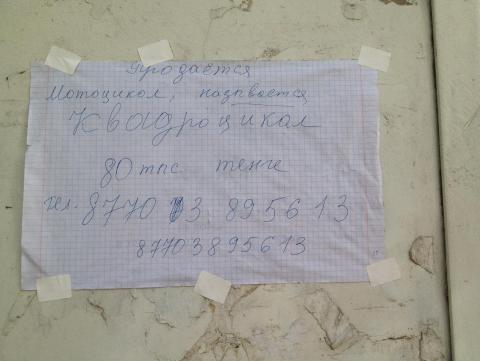 Продаётся
Мотоцикол, называется
Квадроцикал
80 тыс тенге
тел. 8770 3 895613
87703895613